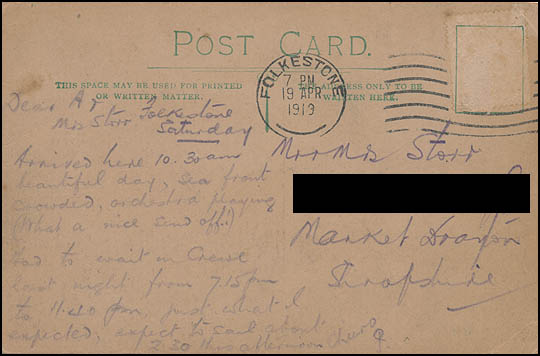 POST CARD.
THIS SPACE MAY BE USED FOR PRINTED
OR WRITTEN MATTER.
THE ADDRESS ONLY TO BE
WRITTEN HERE.
FOLKESTONE
7 PM
19 APR
1919
Dear
Mrs Storr Folkestone
Saturday
Arrived here 10.30 am
beautiful day, sea front
crowded, orchestra playing
(What a nice send off!)
Had to wait in Crewe
last night from 7.15 pm
to 11.40 pm, just what I
expected, expect to sail about
2.30 this afternoon
Mr & Mrs Storr
Market Drayton
Shropshire